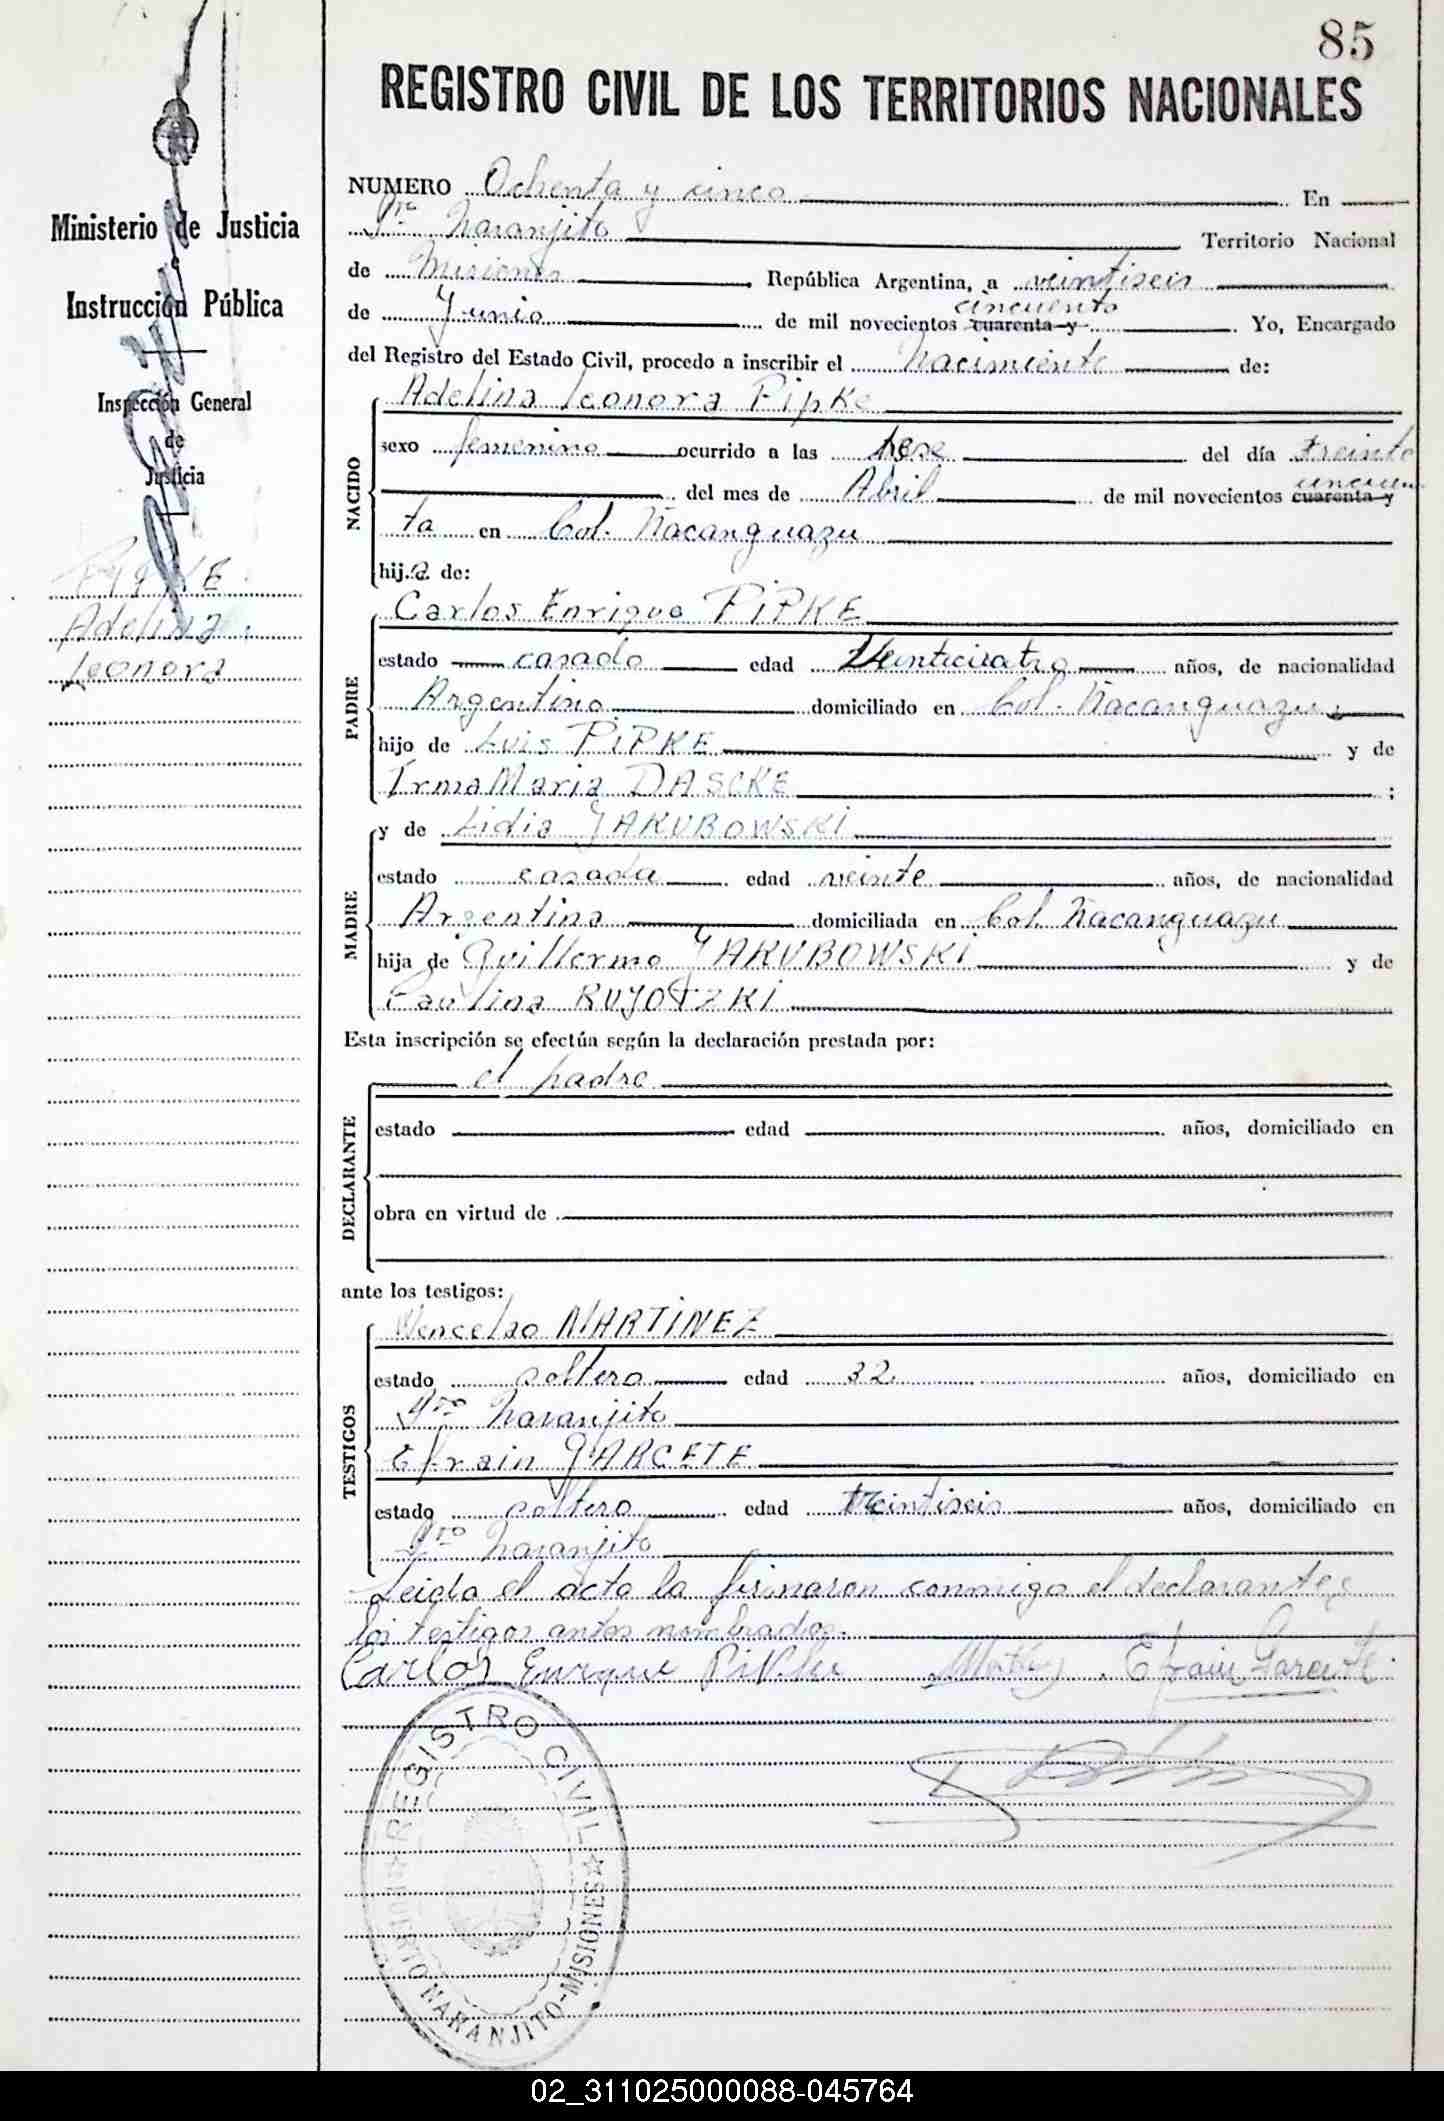 85
REGISTRO CIVIL DE LOS TERRITORIOS NACIONALES
Ministerio de Justicia
e
Instrucción Pública
Inspección General
de
Justicia
PIPKE
Adelina
Leonora
NUMERO Ochenta y cinco En
Pto Naranjito Territorio Nacional
de Misiones República Argentina, a veintiseis
de Junio de mil novecientos cuarenta y cincuenta. Yo, Encargado
del Registro del Estado Civil, procedo a inscribir el Nacimiento de:
NACIDO
Adelina Leonora Pipke
sexo femenino ocurrido a las del día treinta
del mes de Abril de mil novecientos cuarenta y cincuen
ta en Col. Ñacanguazu
hija de:
PADRE
Carlos Enrique PIPKE
estado casado edad Veinticuatro años, de nacionalidad
Argentino domiciliado en Col. Ñacanguazu
hijo de Luis PIPKE y de
Irma Maria DASCKE ;
MADRE
y de Lidia YAKUBOWSKI
estado casada edad veinte años, de nacionalidad
Argentina domiciliada en Col. Ñacanguazu
hija de Guillermo YAKUBOWSKI y de
Paulina
Esta inscripción se efectúa según la declaración prestada por:
DECLARANTE
el padre
estado edad años, domiciliado en
obra en virtud de
ante los testigos:
TESTIGOS
Wencelao MARTINEZ
estado soltero edad 32 años, domiciliado en
Pto Naranjito
Efrain GARCETE
estado soltero edad treintiseis años, domiciliado en
Pto Naranjito
Leida el acta la firmaron conmigo el declarante y
los testigos antes nombrados.
Carlos Enrique Pipke Efrain Garcete
REGISTRO CIVIL
PUERTO NARANJITO-MISIONES
02_311025000088-045764